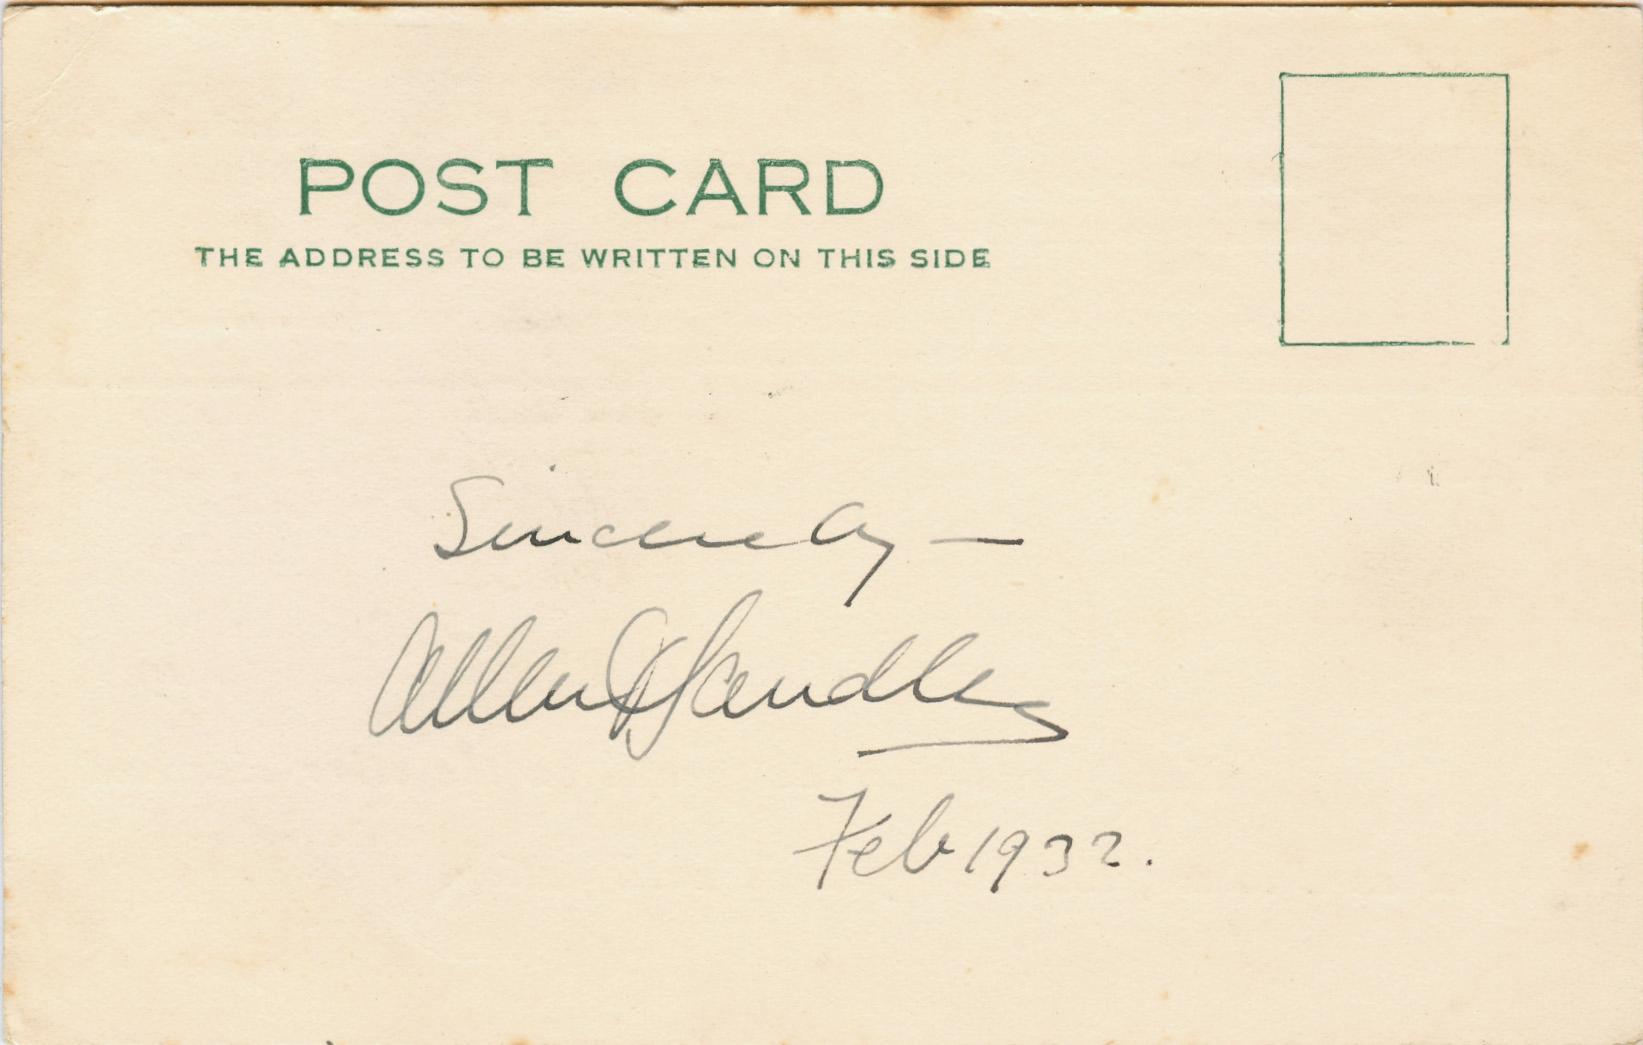 POST CARD
THE ADDRESS TO BE WRITTEN ON THIS SIDE
Sincerely —
Allen Handley
Feb 1932.